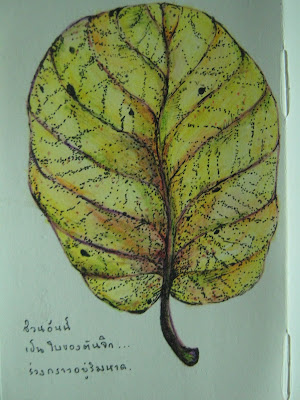 ส่วนอันนี้
เป็น ใบของต้นจิก...
ร่วงกราวอยู่ริมหาด.